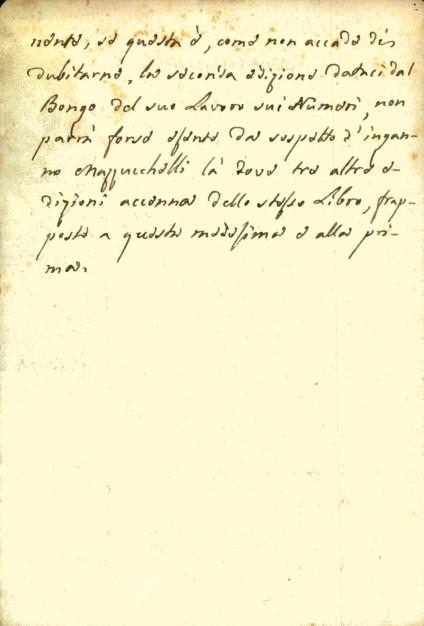 nente, se questa è, come non accade di
dubitarne, la seconda edizione dataci dal
Bongo del suo Lavoro sui Numeri, non
parrà forse esente da sospetto d'ingan-
no Mazzucchelli là dove tre altre e-
dizioni accenna dello stesso Libro, frap-
poste a questa medesima e alla pri-
ma.